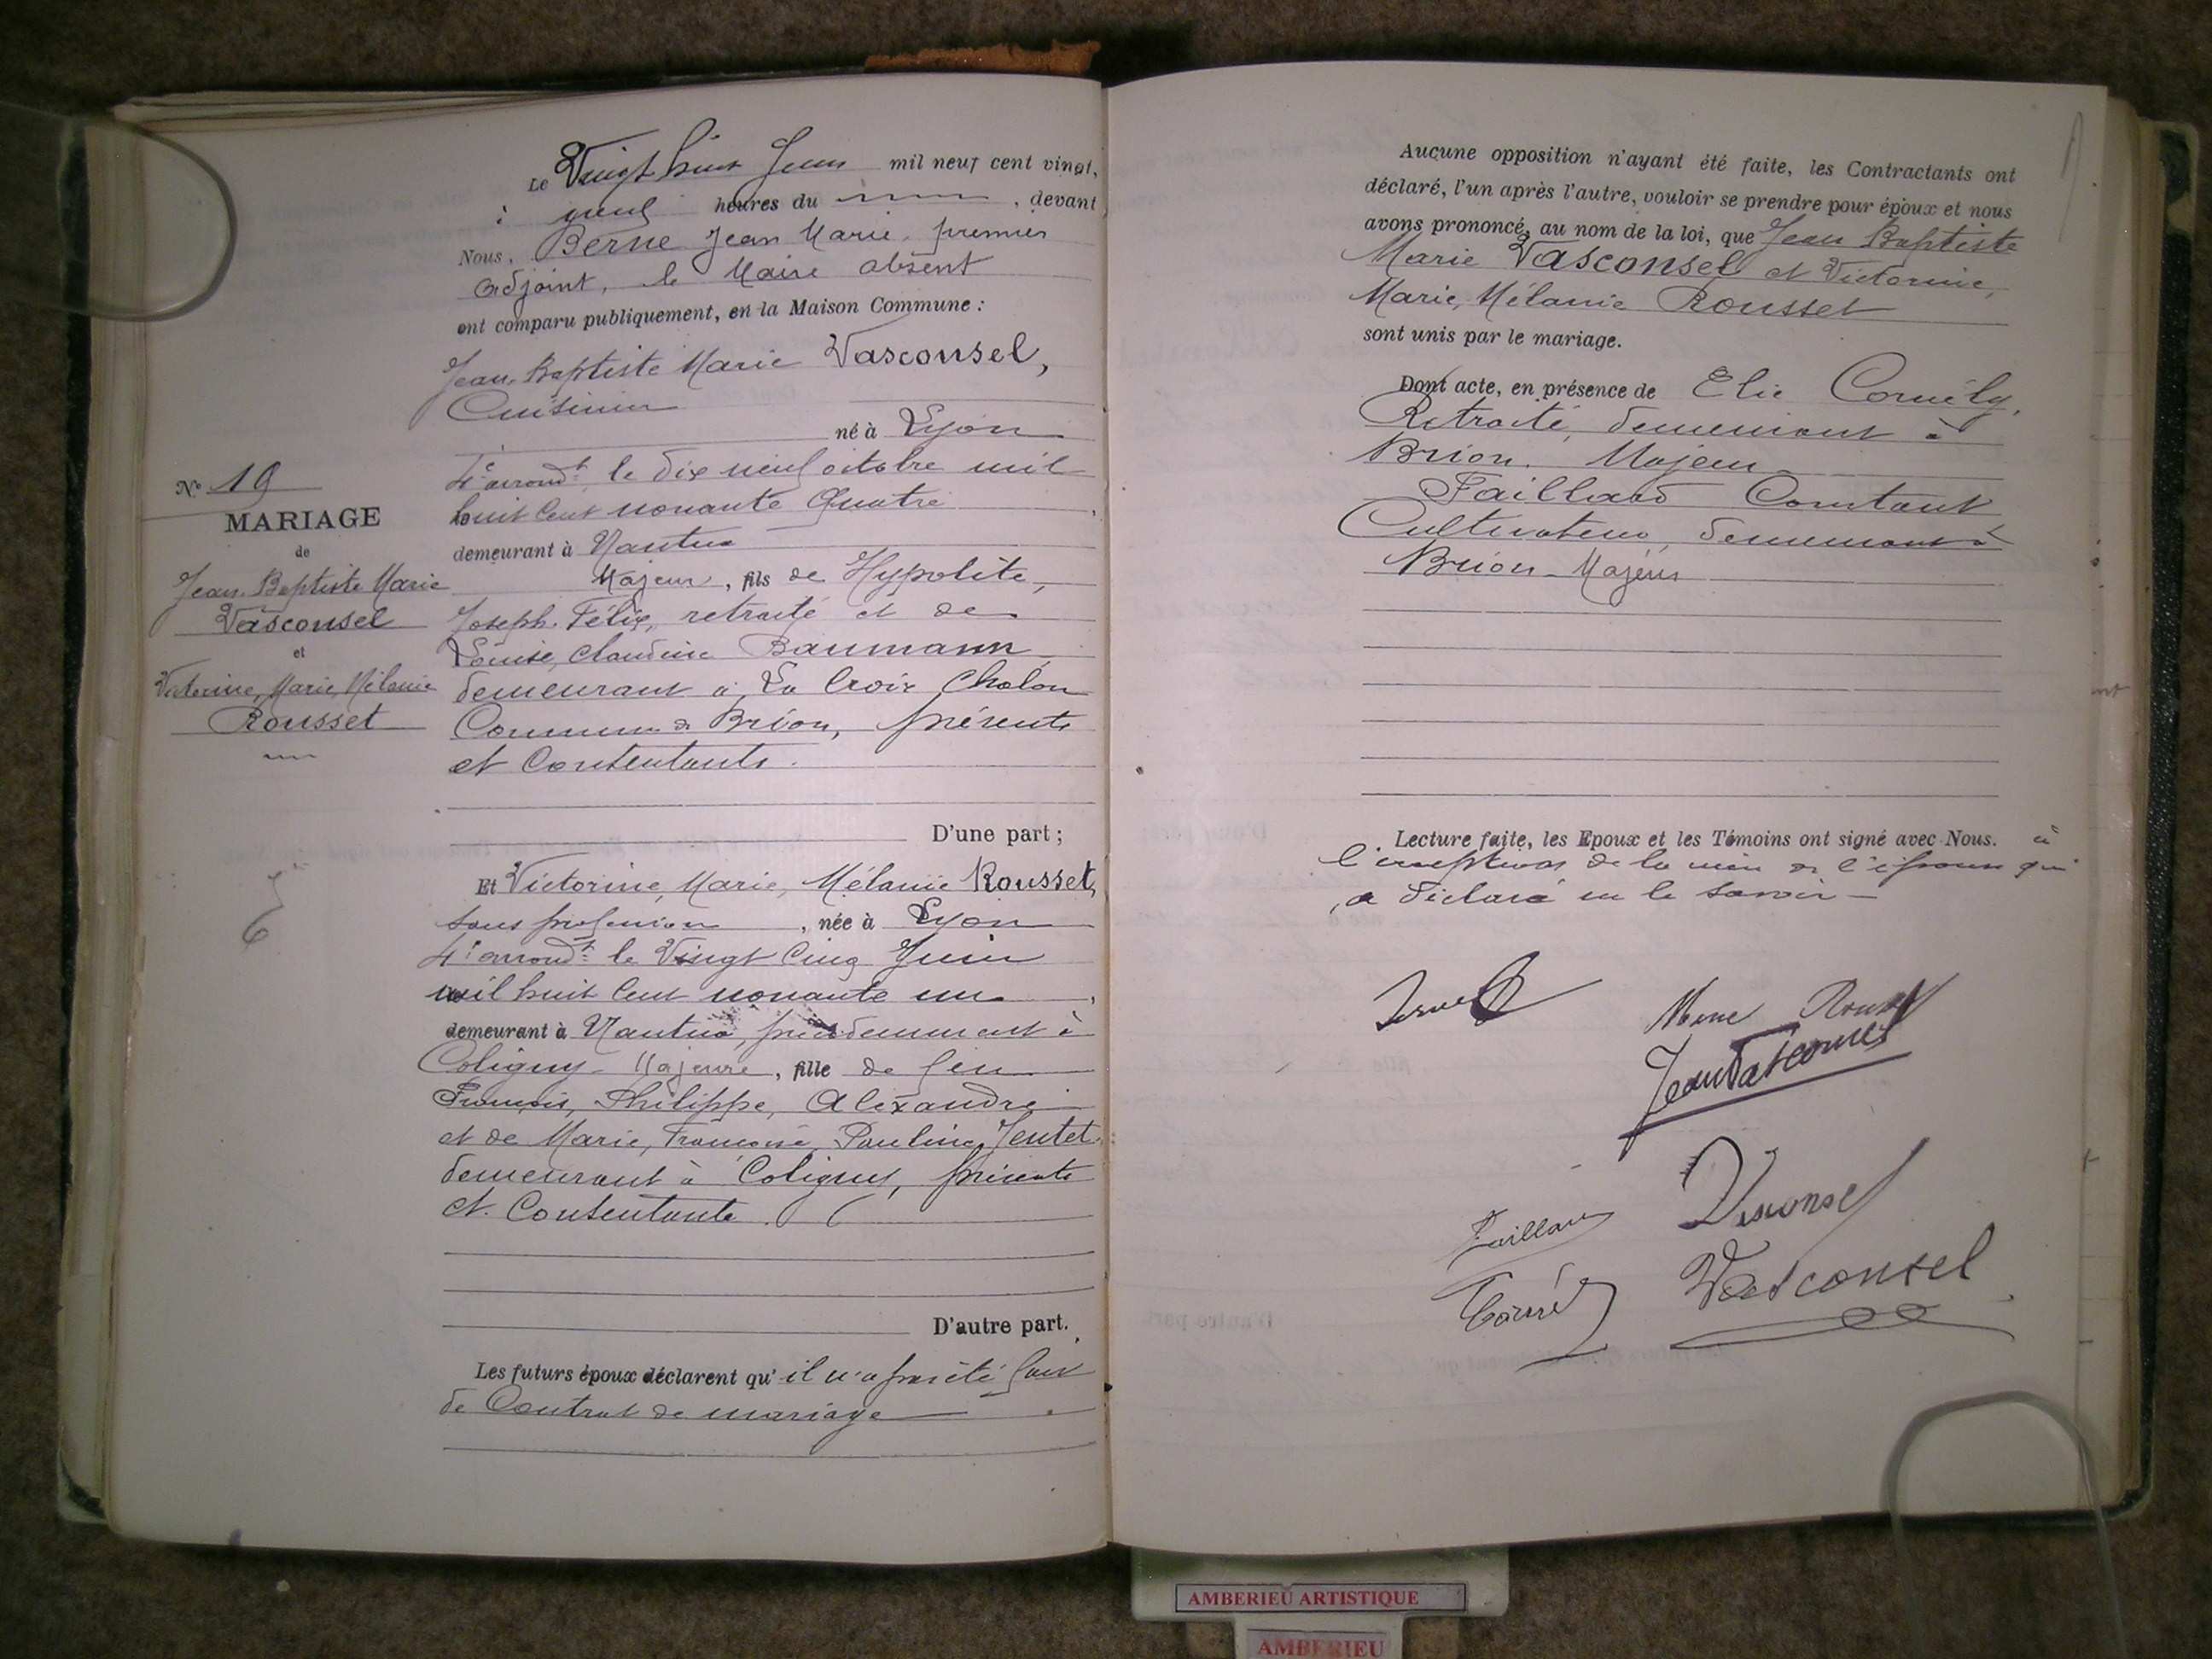 Le Vingt huit Juin mil neuf cent vingt,
à neuf heures du , devant
Nous, Berne Jean Marie, premier
adjoint, le Maire absent
ont comparu publiquement, en la Maison Commune :
Jean Baptiste Marie Vasconsel,
Cuisinier
né à Lyon
4e arrondt le dix neuf octobre mil
huit cent nonante quatre
demeurant à Nantua
Majeur, fils de Hypolite,
Joseph, Félix, retraité et de
Louise, Claudine Baumann
demeurant à La Croix Chalon
Commune de Brion, présents
et Consentants.
D'une part ;
No 19
MARIAGE
de
Jean Baptiste Marie
Vasconsel
et
Victorine, Marie, Mélanie
Rousset
6
Et Victorine, Marie, Mélanie Rousset,
sans profession, née à Lyon
4e arrondt le Vingt Cinq Juin
mil huit cent nonante un
demeurant à Nantua, précédemment à
Coligny Majeure, fille de feu
François, Philippe, Alexandre
et de Marie, Françoise, Pauline Jentet
demeurant à Coligny, présente
et Consentante.
D'autre part.
Les futurs époux déclarent qu'il n'a pas été fait
de Contrat de mariage
Aucune opposition n'ayant été faite, les Contractants ont
déclaré, l'un après l'autre, vouloir se prendre pour époux et nous
avons prononcé, au nom de la loi, que Jean Baptiste
Marie Vasconsel et Victorine,
Marie, Mélanie Rousset
sont unis par le mariage.
Dont acte, en présence de Elie Cornély,
Retraité, demeurant à
Brion. Majeur
Paillard Constant
Cultivateur, demeurant à
Brion - Majeurs
Lecture faite, les Epoux et les Témoins ont signé avec Nous. à
l'exception de la mère de l'épouse qui
a déclaré ne le savoir
Berne
Rousset
Jean Vasconsel
Paillard
Vasconsel
Vasconsel
AMBERIEU ARTISTIQUE
AMBERIEU